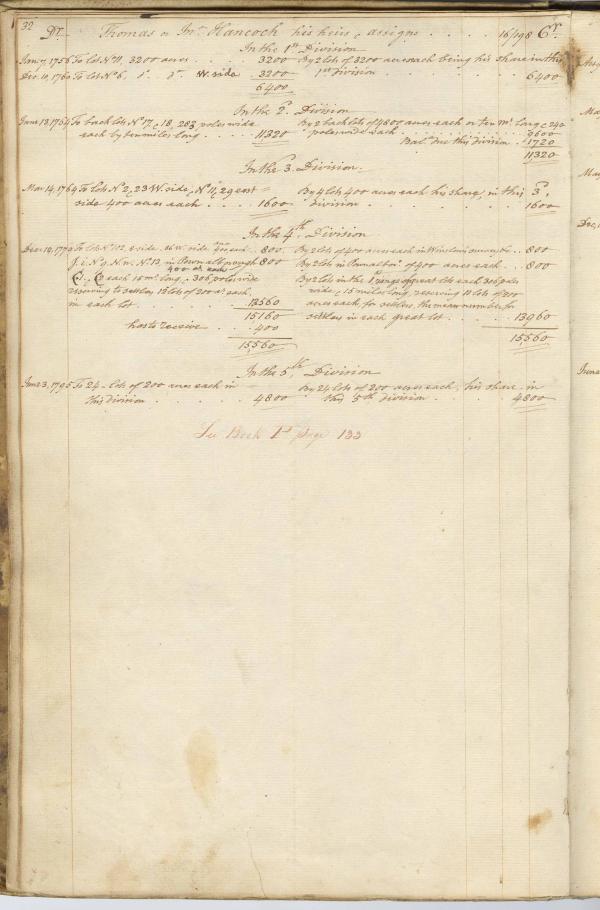 32
Dr. Thomas or Jno. Hancock his heirs & assigns 16/198 Cr.
In the 1st Division
June 7, 1756 To lot No 11, 3200 acres 3200 By 2 lots of 3200 acres each being his share in this
Dec. 10, 1760 To lot No 6, do. do. W. side 3200 1st division 6400
6400
In the 2d. Division
June 13, 1764 To back lots No 17, & 18, 283 poles wide By 2 back lots of 4800 acres each or ten ms. long & 240
each by ten miles long 11320 poles wide each 9600
Ball. due this division 1720
11320
In the 3. Division.
Mar 14, 1769 To lots No 2, 23 W. side, No 11, 29 east By 4 lots 400 acres each his share, in this 3d.
side 400 acres each 1600 division 1600
In the 4th Division
To lots No 112, e. side, 26 W. side 400 each 800 By 2 lots of 400 acres each in 800
No 13 in 800 By 2 lots in of 400 acres each 800
400 as. each
each 15 ms. long, & 306 poles wide By 2 lots in the 1st range of great lots each 306 poles
reserving to settlers 12 lots of 200 as. each wide, & 15 miles long, reserving 10 lots of 200
in each lot 13560 acres each, for settlers, the mean number for
15160 settlers in each great lot 13960
has to receive 400
15,560 15560
In the 5th Division
June 3, 1795 To 24 lots of 200 acres each in By 24 lots of 200 acres each, his share in
this division 4800 this 5th division 4800
See Book 1st page 133